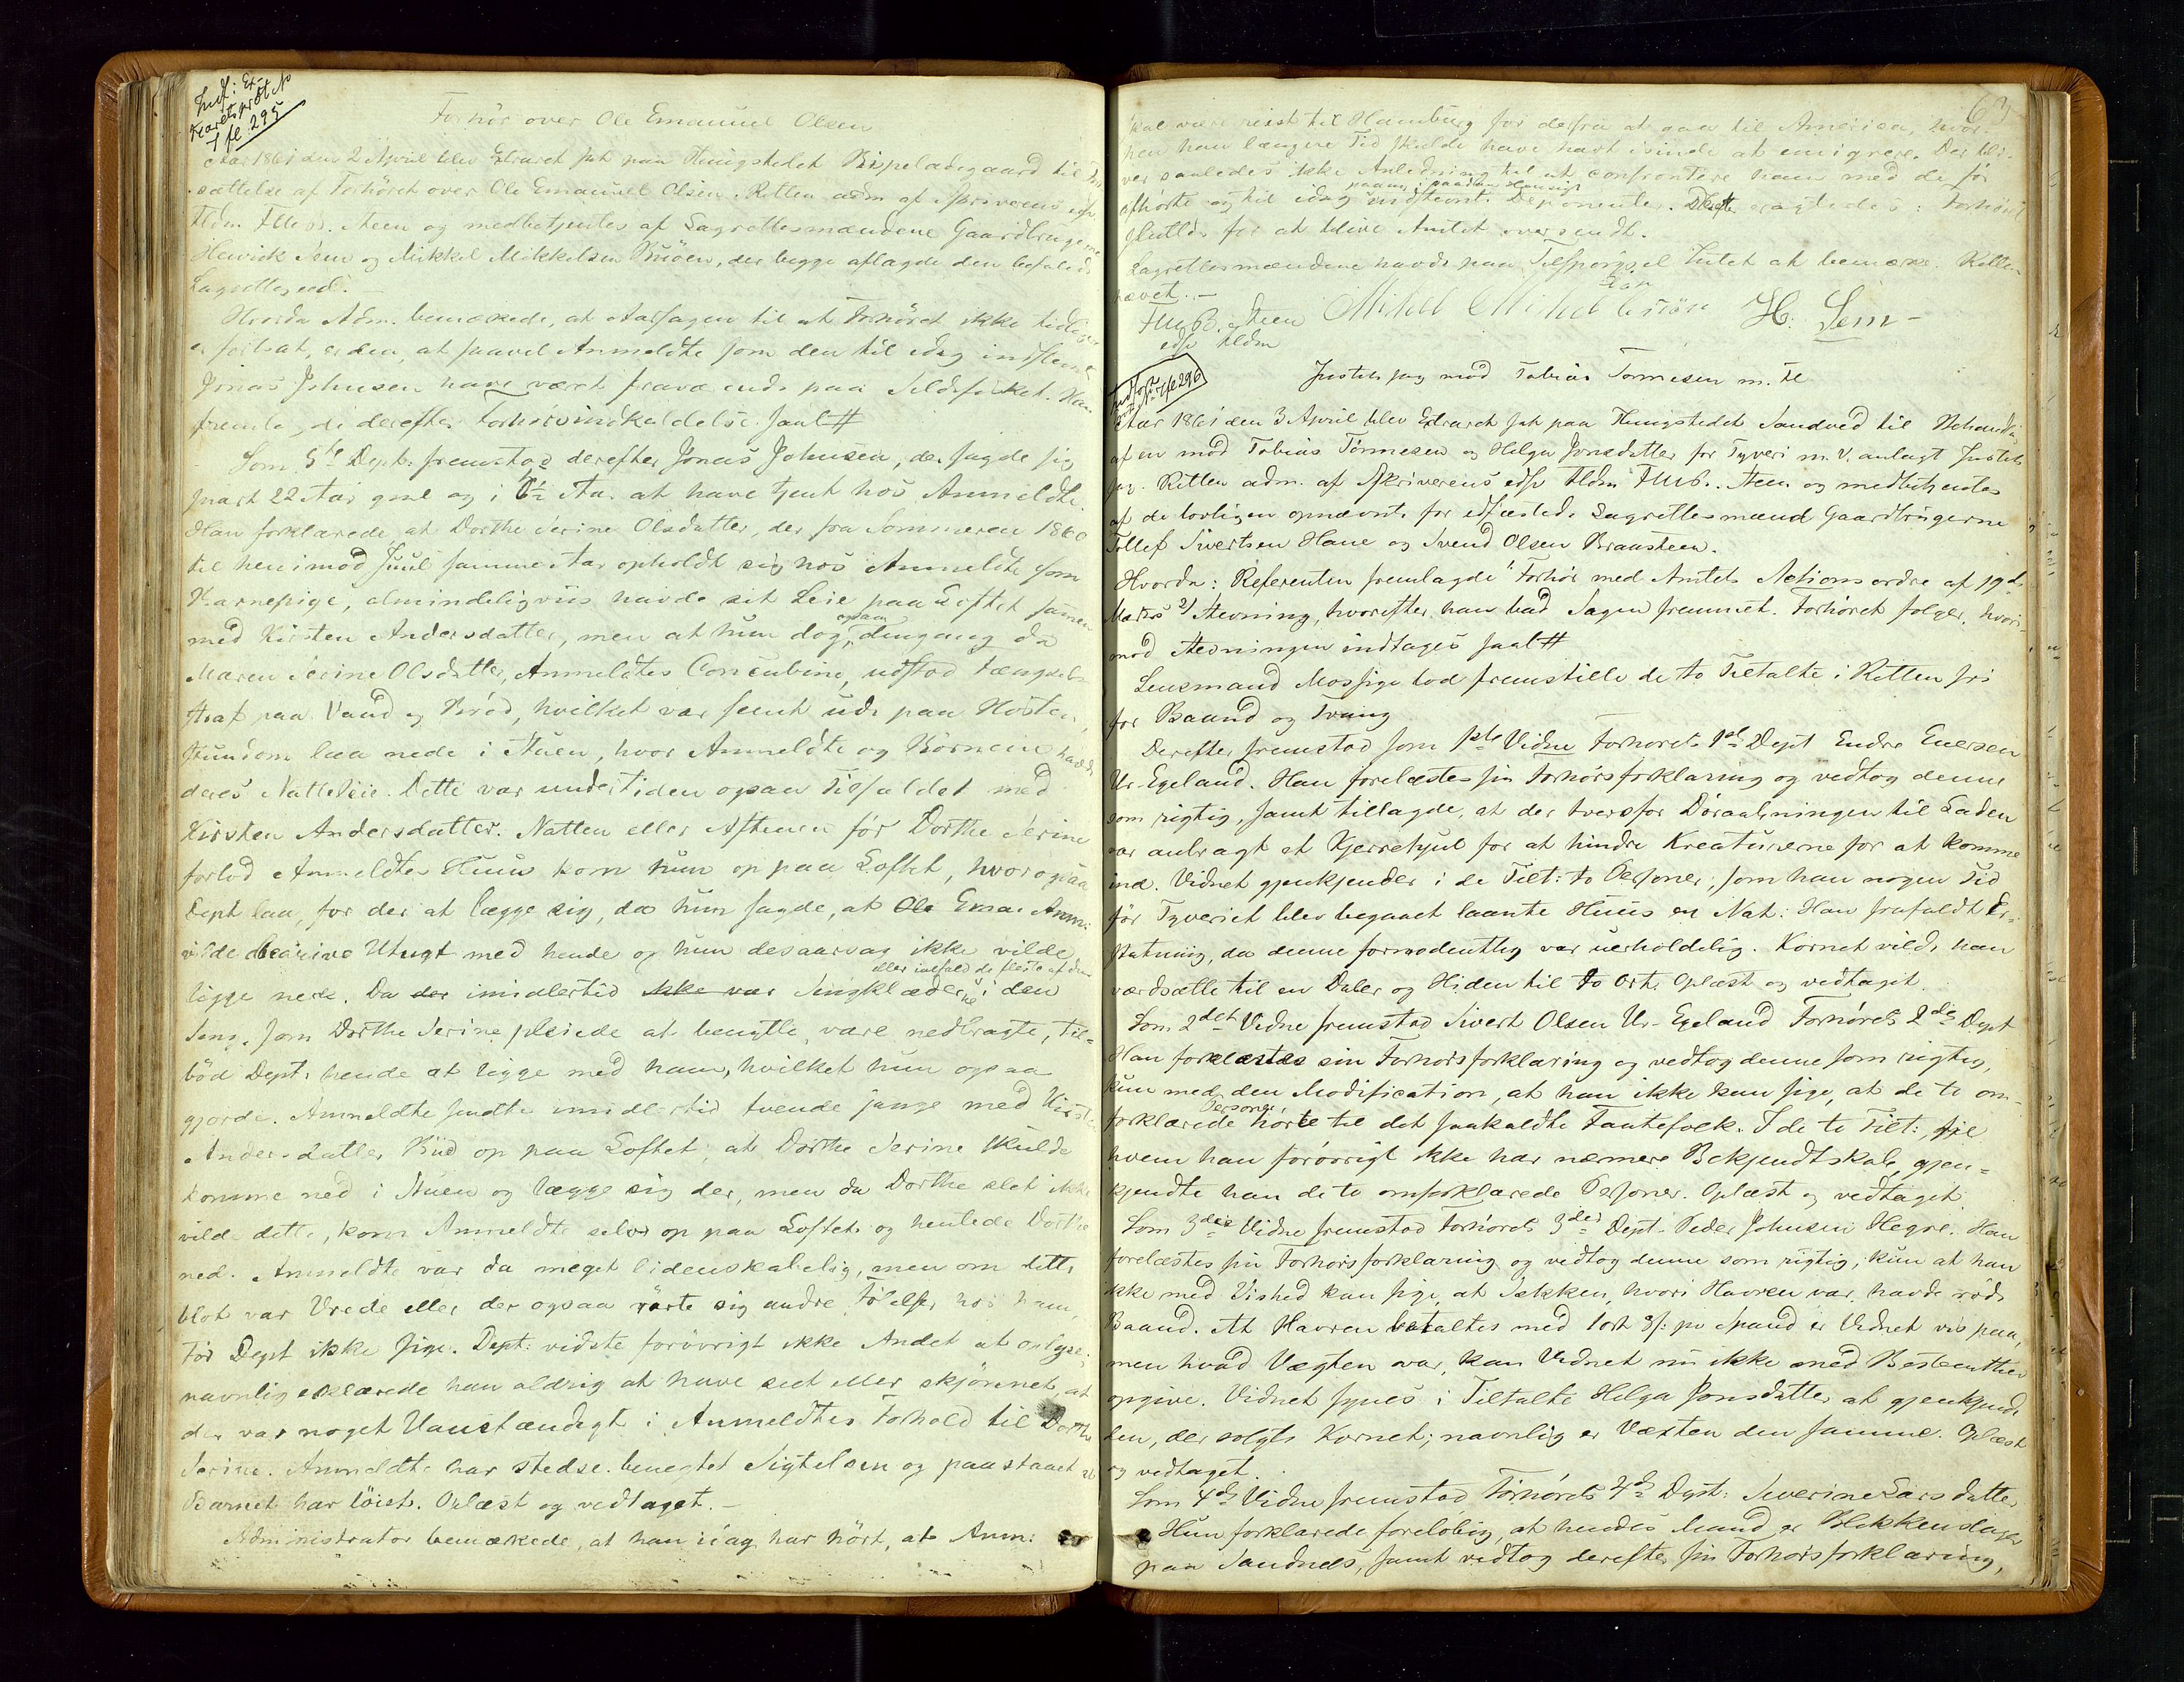 Indf: Ex-
traretsprot No
7 fl. 295
Forhör over Ole Emanuel Olsen
Aar 1861 den 2 April blev Extraret sat paa Thingstedet Rispeladegaard til Fort-
sættelse af Forhöret over Ole Emanuel Olsen. Retten adm af Skriverens edsv
Fldm. F Steen og medbetjentes af Lagrettesmændene Gaardbrugerne
Henrik Sem og Mikkel Mikkelsen Buöen, der begge aflagde den befalede
Lagrettesed. –
Hvorda Adm. bemærkede, at Aarsagen til at Forhöret ikke tidligere
er fortsat, er den, at saavel Anmeldte som den til idag indstevnte
Jonas Johnsen have været fraværende paa Sildefisket. Han
fremla, de derefter Forhörsindkaldelse. saal #
Som 5te Dept: fremstod derefter Jonas Johnsen, der sagde sig
snart 22 Aar gml og i 1½ Aar at have tjent hos Anmeldte.
Han forklarede, at Dorthe Serine Olsdatter, der fra Sommeren 1860
til henimod Juul samme Aar opholdt sig hos Anmeldte som
Barnepige, almindeligviis havde sit Leie paa Loftet sammen
med Kirsten Andersdatter, men at hun dog, ogsaa dengang da
Maren Serine Olsdatter, Anmeldtes Concubine, udstod Fængsels-
straf paa Vand og Bröd, hvilket var sent ude paa Hösten,
stundom laa nede i Stuen, hvor Anmeldte og Börnene havde
deres Natteleie. Dette var undertiden ogsaa Tilfældet med
Kirsten Andersdatter. Natten eller Aftenen för Dorthe Serine
forlod Anmeldtes Huus kom hun op paa Loftet, hvor ogsaa
Dept laa, for der at lægge sig, da hun sagde, at Ole Ema: Anm:
vilde bedrive Utugt med hende og hun desaarsag ikke vilde
ligge nede. Da der imidlertid ikke var Sengklæderne eller ialfald de fleste af dem i den
Seng, som Dorthe Serine pleiede at benytte, vare nedbragte, til-
böd Dept: hende at ligge med ham, hvilket hun ogsaa
gjorde. Anmeldte sendte imidlertid tvende gange med Kirsten
Andersdatter Bud op paa Loftet, at Dorthe Serine skulde
komme ned i Stuen og lægge sig der, men da Dorthe slet ikke
vilde dette, kom Anmeldte selv op paa Loftet og hentede Dorthe
ned. Anmeldte var da meget lidenskabelig, men om dette
blot var Vrede eller der ogsaa rörte sig andre Fölelser hos ham,
tör Dept ikke sige. Dept: vidste forövrigt ikke Andet at oplyse,
navnlig erklærede han aldrig at have seet eller skjönnet, at
der var noget Uanstændigt i Anmeldtes Forhold til Dorthe
Serine. Anmeldte har stedse benegtet Sigtelsen og paastaaet at
Barnet har löiet. Oplæst og vedtaget. –
Administrator bemærkede, at han idag har hört, at Anm:
63
skal være reist til Hamburg for derfra at gaa til America, hvor-
hen han længere Tid skulde have havt isinde at emigrere. Der bli-
ver saaledes ikke Anledning til at confrontere ham med de för
afhörte og til idag paany i saadan Hensigt indstevnte Deponenter. Derefter eragtedes: Forhöret
sluttet for at blive Amtet oversendt.
Lagrettesmændene havde paa Tilspörgsel Intet at bemærke. Retten
hævet. –
Steen
edsv fldm
Mikkel Mikkelsen Buöen
H. Sem –
Justitssag mod Tobias Tönnesen m. Fl
fl 296
Aar 1861 den 3 April blev Extraret sat paa Thingstedet Sandved til Behandling
af en mod Tobias Tönnesen og Helga Jonsdatter for Tyveri m. V. anlagt Justits
sag. Retten adm. af Skriverens edsv Fldm Steen og medbetjentes
af de lovligen opnævnte for edfæstede Lagrettesmænd Gaardbrugerne
Tollef Sivertsen Hane og Svend Olsen Braasteen.
Hvorda: Referenten fremlagde 1) Forhör med Amtets Actionsordre af 19de
Marts 2) Stevning, hvorefter han bad Sagen fremmet. Forhöret fölger, hvori-
mod Stevningen indtages saal #
Lensmand Mossige lod fremstille de to Tiltalte i Retten fri
for Baand og Tvang
Derefter fremstod som 1ste Vidne Forhörets 1ste Dept Endre Enersen
Ur-Egeland. Han forelæstes sin Forhörsforklaring og vedtog denne
som rigtig, samt tillagde, at der tversfor Döraabningen til Laden
var anbragt et Kjerrehjul for at hindre Kreaturerne for at komme
ind. Vidnet gjenkjender i de Tilt: to Personer, som han nogen Tid
för Tyveriet blev begaaet laante Huus en Nat: Han frafaldt Er-
statning, da denne formodentlig var uerholdelig. Kornet vilde han
værdsætte til en Daler og Huden til to Ort. Oplæst og vedtaget.
Som 2det Vidne fremstod Sivert Olsen Ur-Egeland Forhörets 2den Dept
Han forelæstes sin Forhörsforklaring og vedtog denne som rigtig,
kun med den Modification, at han ikke kan sige, at de to om-
forklarede Personer hörte til det saakaldte Fantefolk. I de to Tilt:, til
hvem han forövrigt ikke har nærmere Bekjendtskab, gjen-
kjendte han de to omforklarede Personer. Oplæst og vedtaget.
Som 3die Vidne fremstod Forhörets 3die Dept. Peder Johnsen Hegre. Han
forelæstes sin Forhörsforklaring og vedtog denne som rigtig, kun at han
ikke med Vished kan sige, at Sækken, hvori Havren var, havde röde
Baand. At Havren betaltes med 1 ort 3 s pr Spand er Vidnet vis paa,
men hvad Vægten var, kan Vidnet nu ikke med Bestemthed
opgive. Vidnet synes i Tiltalte Helga Jonsdatter at gjenkjende
den, der solgte Kornet; navnlig er Væxten den samme. Oplæst
og vedtaget.
Som 4de Vidne fremstod Forhörets 4de Dept: Severine Larsdatter
Hun forklarede foreløbig, at hendes Mand er Blikkenslager
paa Sandnæs, samt vedtog derefter sin Forhörsforklaring,